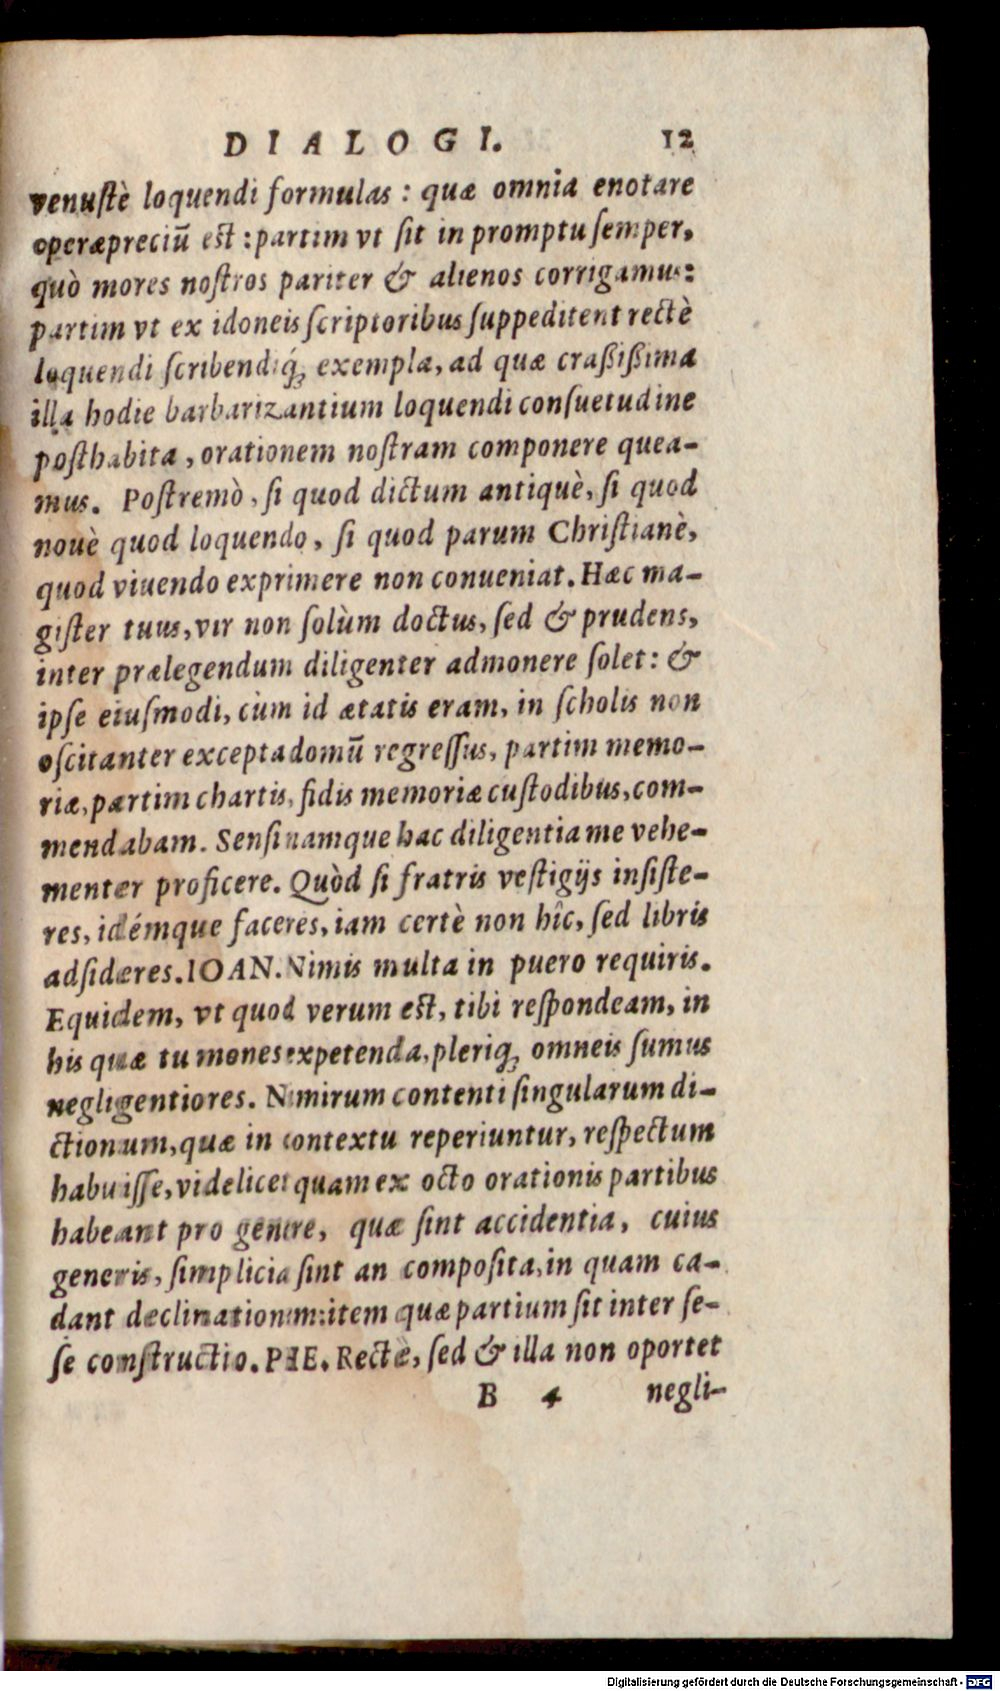 DIALOGI. 12
venuſtè loquendi formulas : quæ omnia enotare
operæpreciũ eſt : partim vt ſit in promptu ſemper,
quò mores noſtros pariter & alienos corrigamus:
partim vt ex idoneis ſcriptoribus ſuppeditent rectè
loquendi ſcribendiq́; exempla, ad quæ craßißima
illa hodie barbarizantium loquendi conſuetudine
poſthabita, orationem noſtram componere quea-
mus. Poſtremò, ſi quod dictum antiquè, ſi quod
nouè quod loquendo, ſi quod parum Chriſtianè,
quod viuendo exprimere non conueniat. Hæc ma-
giſter tuus, vir non ſolùm doctus, ſed & prudens,
inter prælegendum diligenter admonere ſolet: &
ipſe eiuſmodi, cùm id ætatis eram, in ſcholis non
oſcitanter excepta domũ regreſſus, partim memo-
riæ, partim chartis, fidis memoriæ cuſtodibus, com-
mendabam. Senſi namque hac diligentia me vehe-
menter proficere. Quòd ſi fratris veſtigijs inſiſte-
res, idémque faceres, iam certè non hîc, ſed libris
adſideres. IOAN. Nimis multa in puero requiris.
Equidem, vt quod verum eſt, tibi reſpondeam, in
his quæ tu mones expetenda, pleriq; omneis ſumus
negligentiores. Nimirum contenti ſingularum di-
ctionum, quæ in contextu reperiuntur, reſpectum
habuiſſe, videlicet quam ex octo orationis partibus
habeant pro genere, quæ ſint accidentia, cuius
generis, ſimplicia ſint an compoſita, in quam ca-
dant declinationum: item quæ partium ſit inter ſe-
ſe conſtructio. PHE. Rectè, ſed & illa non oportet
B 4 negli-
Digitalisierung gefördert durch die Deutsche Forschungsgemeinschaft - DFG